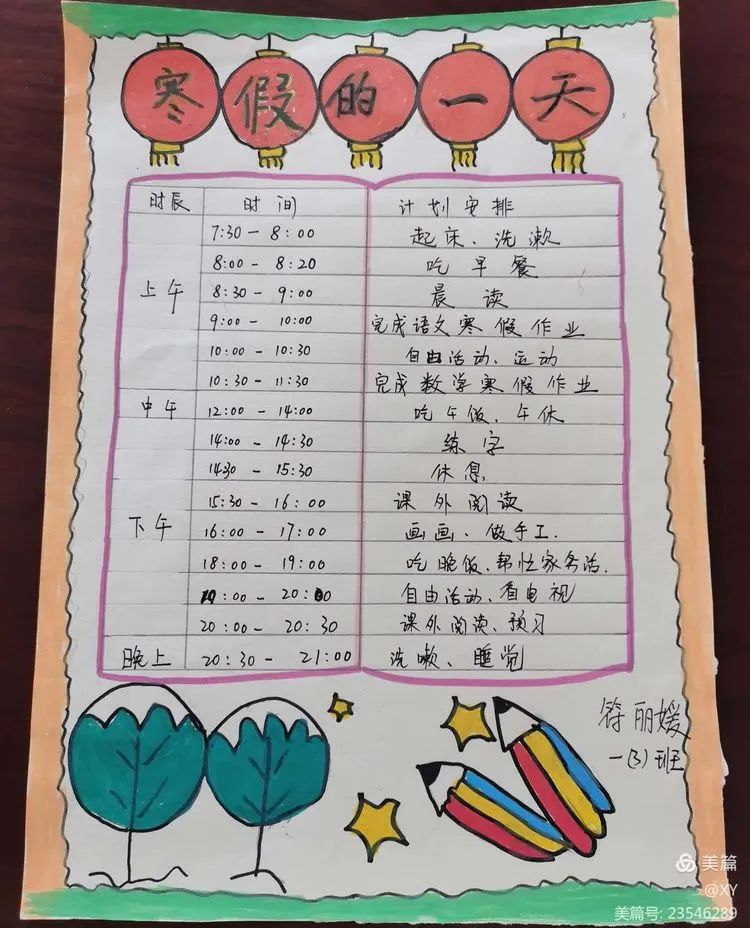 寒假的一天
时辰 时间 计划安排
7:30-8:00 起床、洗漱
8:00-8:20 吃早餐
上午 8:30-9:00 晨读
9:00-10:00 完成语文寒假作业
10:00-10:30 自由活动、运动
10:30-11:30 完成数学寒假作业
中午 12:00-14:00 吃午饭、午休
14:00-14:30 练字
1430-15:30 休息
15:30-16:00 课外阅读
下午 16:00-17:00 画画、做手工.
18:00-19:00 吃晚饭、帮忙家务活.
19:00-20:00 自由活动、看电视
20:00-20:30 课外阅读、预习
晚上 20:30-21:00 洗嗽、睡觉
符丽媛
一(3)班
美篇
@XY
美篇号: 23546289